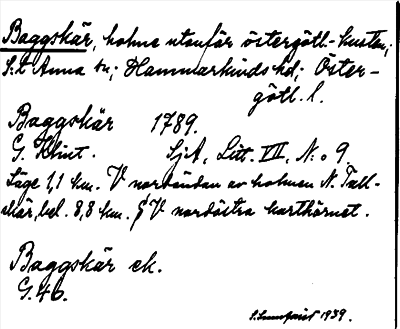 Baggskär, holme utanför östergötl.-kusten;
S:t Anna sn; Hammarkinds hd; Öster-
götl. l.
Baggskär 1789.
G. Klint. Sjk, Litt. VII, N:o 9.
Läge 1,1 km. V nordändan av holmen N. Tall-
skär, bel. 8,8 km. V nordöstra karthörnet.
Baggskär ek.
G. 46.
1939.